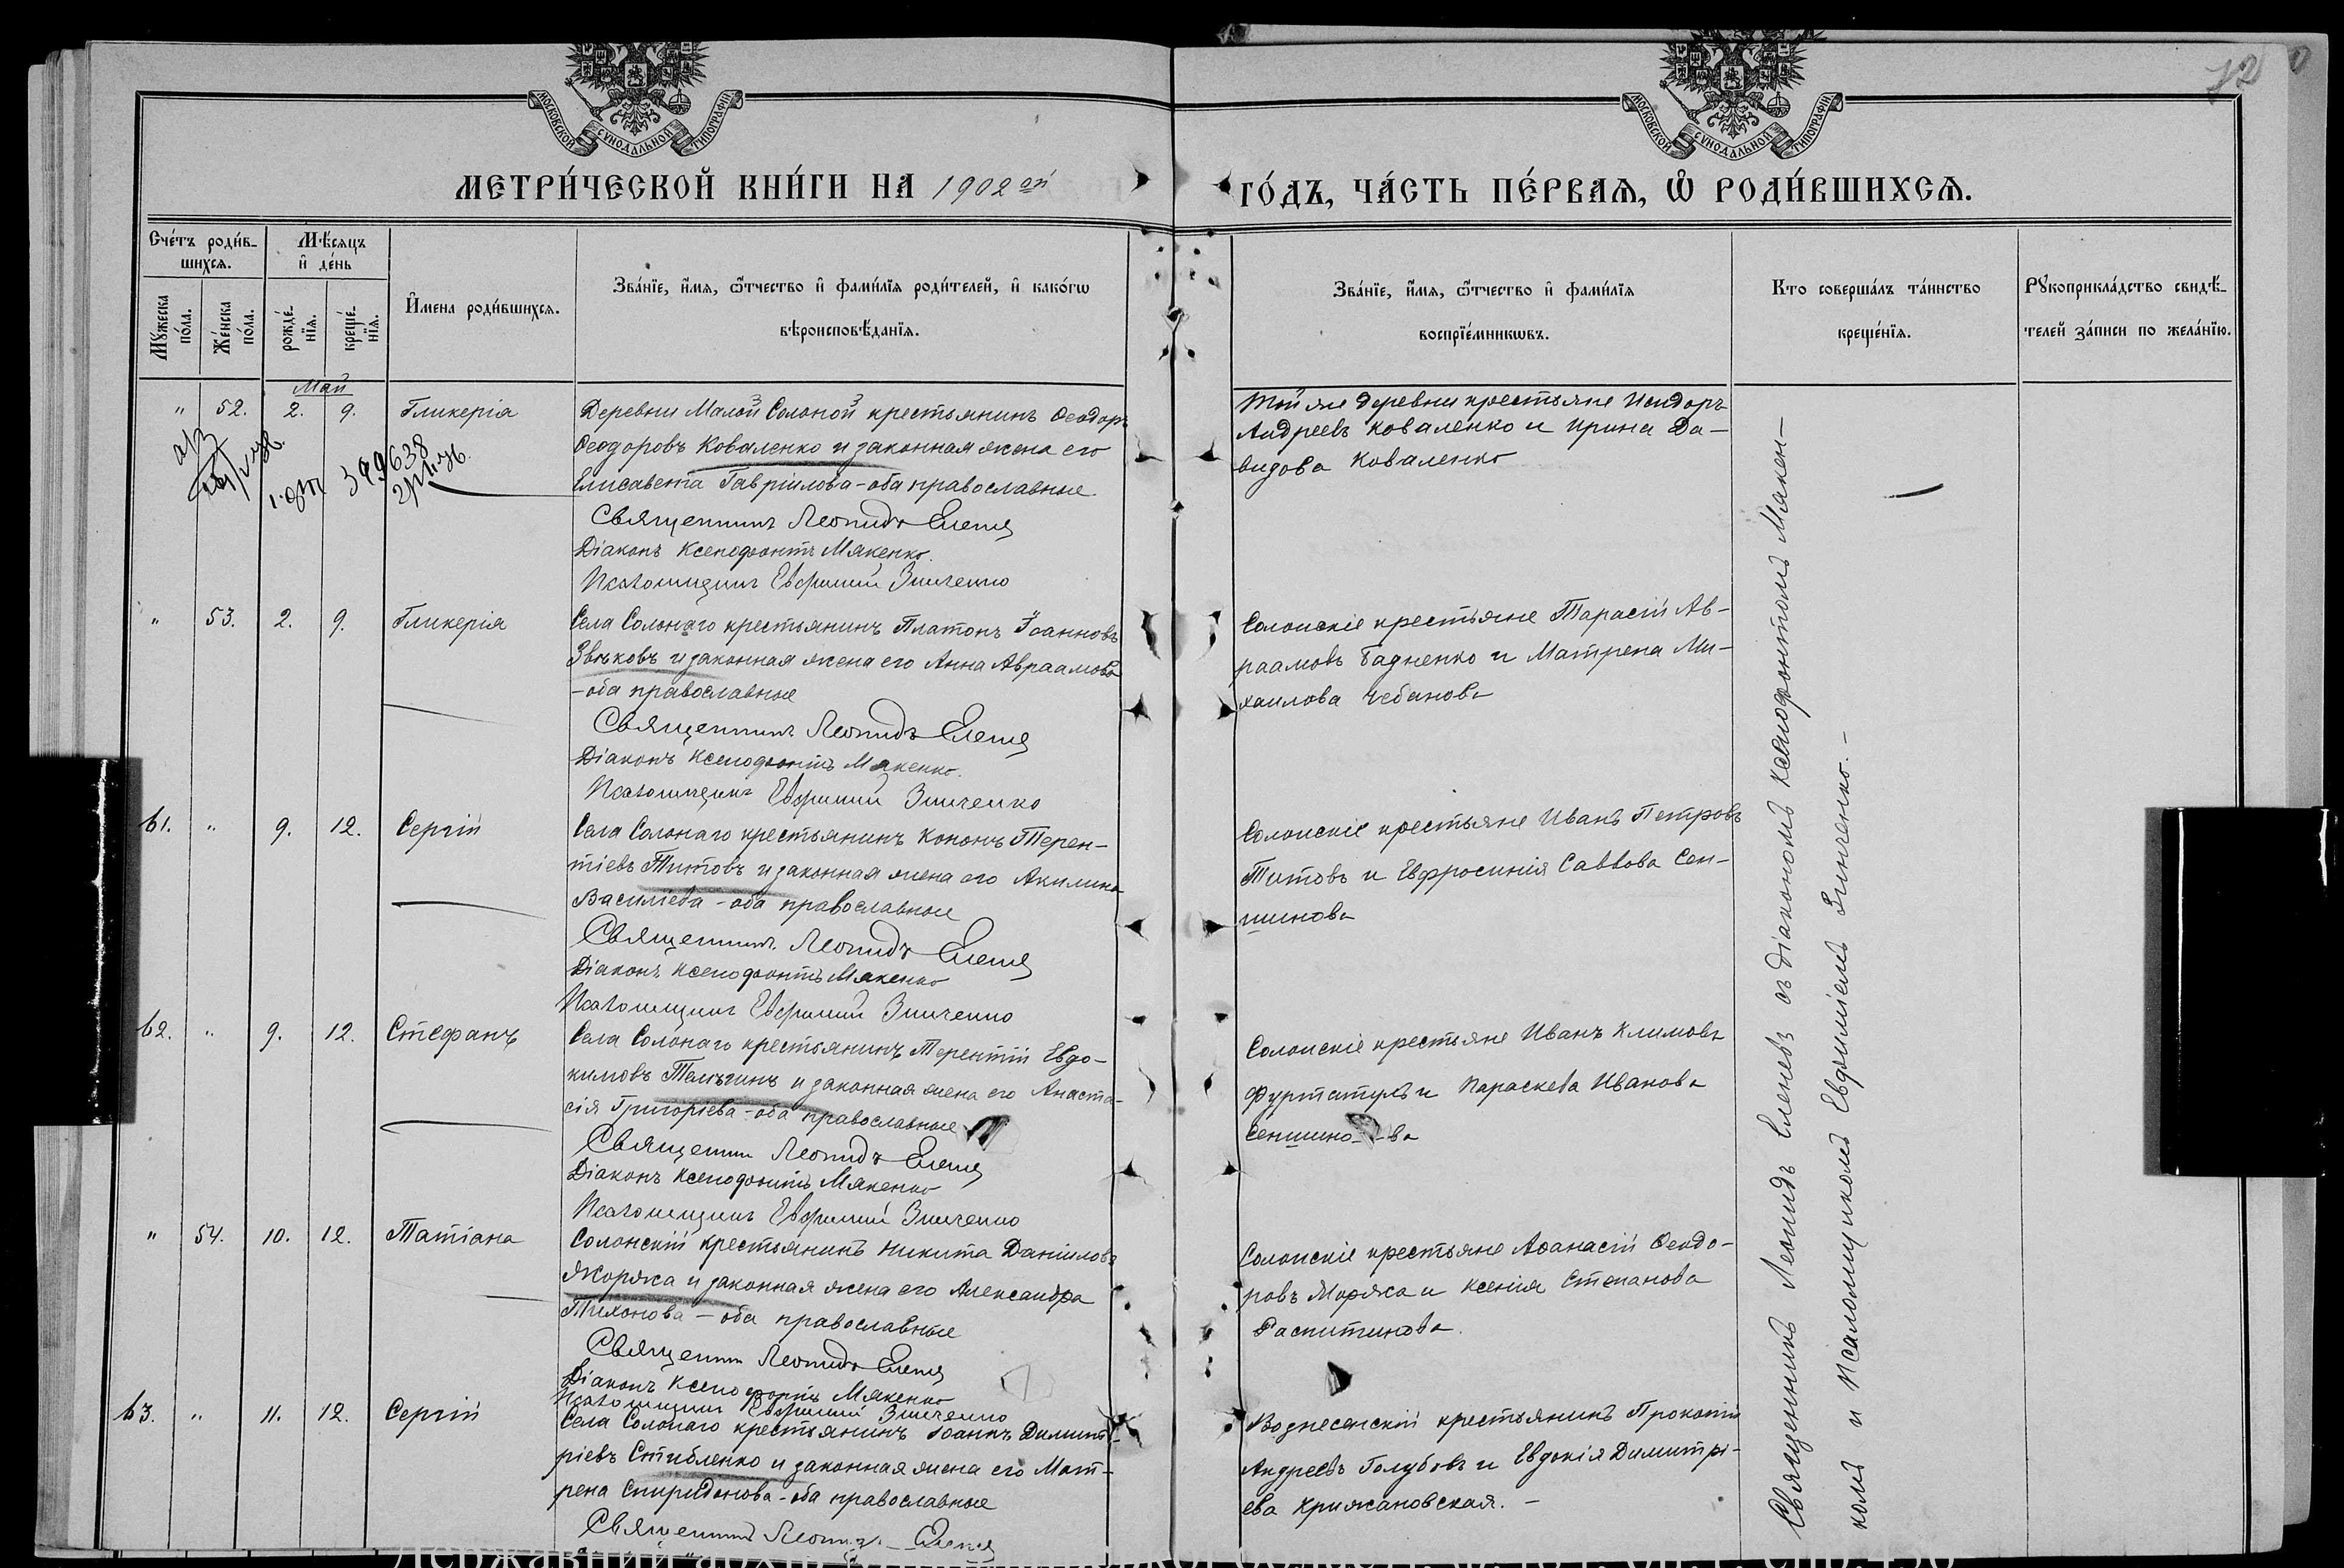 72
МОСКОВСКОЙ СУНОДАЛЬНОЙ ТИПОГРАФІИ
МОСКОВСКОЙ СУНОДАЛЬНОЙ ТИПОГРАФІИ
МЕТРИ́ЧЕСКОЙ КНИ́ГИ НА 1902 ой
ГО́ДЪ, ЧА́СТЬ ПЕ́РВАЯ, Ѡ РОДИ́ВШИХСѦ.
Сче́тъ роди́в-
шихсѧ.
Мѹ́жеска по́ла.
Же́нска по́ла.
Мѣ́сяцъ
и҆ де́нь
рожде́-нїѧ.
креще́-нїѧ.
И҆мена роди́вшихсѧ.
Зва́нїе, и҆́мѧ, ѻ҆́тчество и҆ фами́лїѧ роди́телей, и҆ како́гѡ
вѣроисповѣ́данїѧ.
Зва́нїе, и҆́мѧ, ѻ҆́тчество и҆ фами́лїѧ
воспрїе́мникѡвъ.
Кто соверша́лъ та́инство
креще́нїѧ.
Рѹкоприкла́дство свидѣ́-
телей за́писи по жела́нїю.
Май
" 52. 2. 9. Гликерія
Деревни Малой Солоной крестьянинъ Ѳеодоръ
Ѳеодоровъ Коваленко и законная жена его
Елисавета Гавріилова - оба православные
Священникъ Леонидъ
Діаконъ Ксенофонтъ Мякенко.
Псаломщикъ Евфимій Зинченко
Той же деревни крестьяне Исидоръ
Андреевъ Коваленко и Ирина Да-
видова Коваленко
399638
" 53. 2. 9. Гликерія
Села Солонаго крестьянинъ Платонъ Іоанновъ
Звѣковъ и законная жена его Анна Авраамова
- оба православные
Священникъ Леонидъ
Діаконъ Ксенофонтъ Мякенко.
Псаломщикъ Евфимій Зинченко
Солонскіе крестьяне Тарасій Ав-
раамовъ Бадненко и Матрена Ми-
хаилова Чебанова
61. " 9. 12. Сергій
Села Солонаго крестьянинъ Кононъ Терен-
тіевъ Титовъ и законная жена его Акилина
Василіева - оба православные
Священникъ Леонидъ
Діаконъ Ксенофонтъ Мякенко
Псаломщикъ Евфимій Зинченко
Солонскіе крестьяне Иванъ Петровъ
Титовъ и Евфросинія Саввова Сен-
шинова
62. " 9. 12. Стефанъ
Села Солонаго крестьянинъ Терентій Евдо-
кимовъ Телѣгинъ и законная жена его Анаста-
сія Григоріева - оба православные
Священникъ Леонидъ
Діаконъ Ксенофонтъ Мякенко
Псаломщикъ Евфимій Зинченко
Солонскіе крестьяне Иванъ Климовъ
и Параскева Иванова
Сеншино-ва
" 54. 10. 12. Татіана
Солонскій крестьянинъ Никита Даніиловъ
и законная жена его Александра
Тихонова - оба православные
Священникъ Леонидъ
Діаконъ Ксенофонтъ Мякенко
Псаломщикъ Евфимій Зинченко
Солонскіе крестьяне Аѳанасій Ѳеодо-
ровъ и Ксенія Степанова
Распитинова.
63. " 11. 12. Сергій
Села Солонаго крестьянинъ Іоаннъ Димит-
ріевъ Стибленко и законная жена его Мат-
рена Спиридонова - оба православные
Священникъ
Вознесенскій крестьянинъ Прокопій
Андреевъ Голубовъ и Евдокія Димитрі-
ева Крижановская. -
Священникъ Леонидъ Еленевъ съ діакономъ Ксенофонтомъ Мякен-
комъ и псаломщикомъ Евфиміемъ Зинченко. -